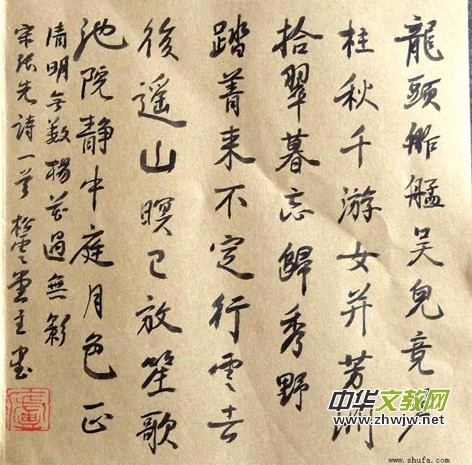 龍頭舴艋吴兒竟笋
柱秋千游女并芳洲
拾翠暮忘歸秀野
踏菁来不定行雲去
後遥山暝已放笙歌
池院静中庭月色正
清明无数楊花過無影
宋张先诗一首 松雲堂主书
中华文教网
www.zhwjw.net
www.shufa.com